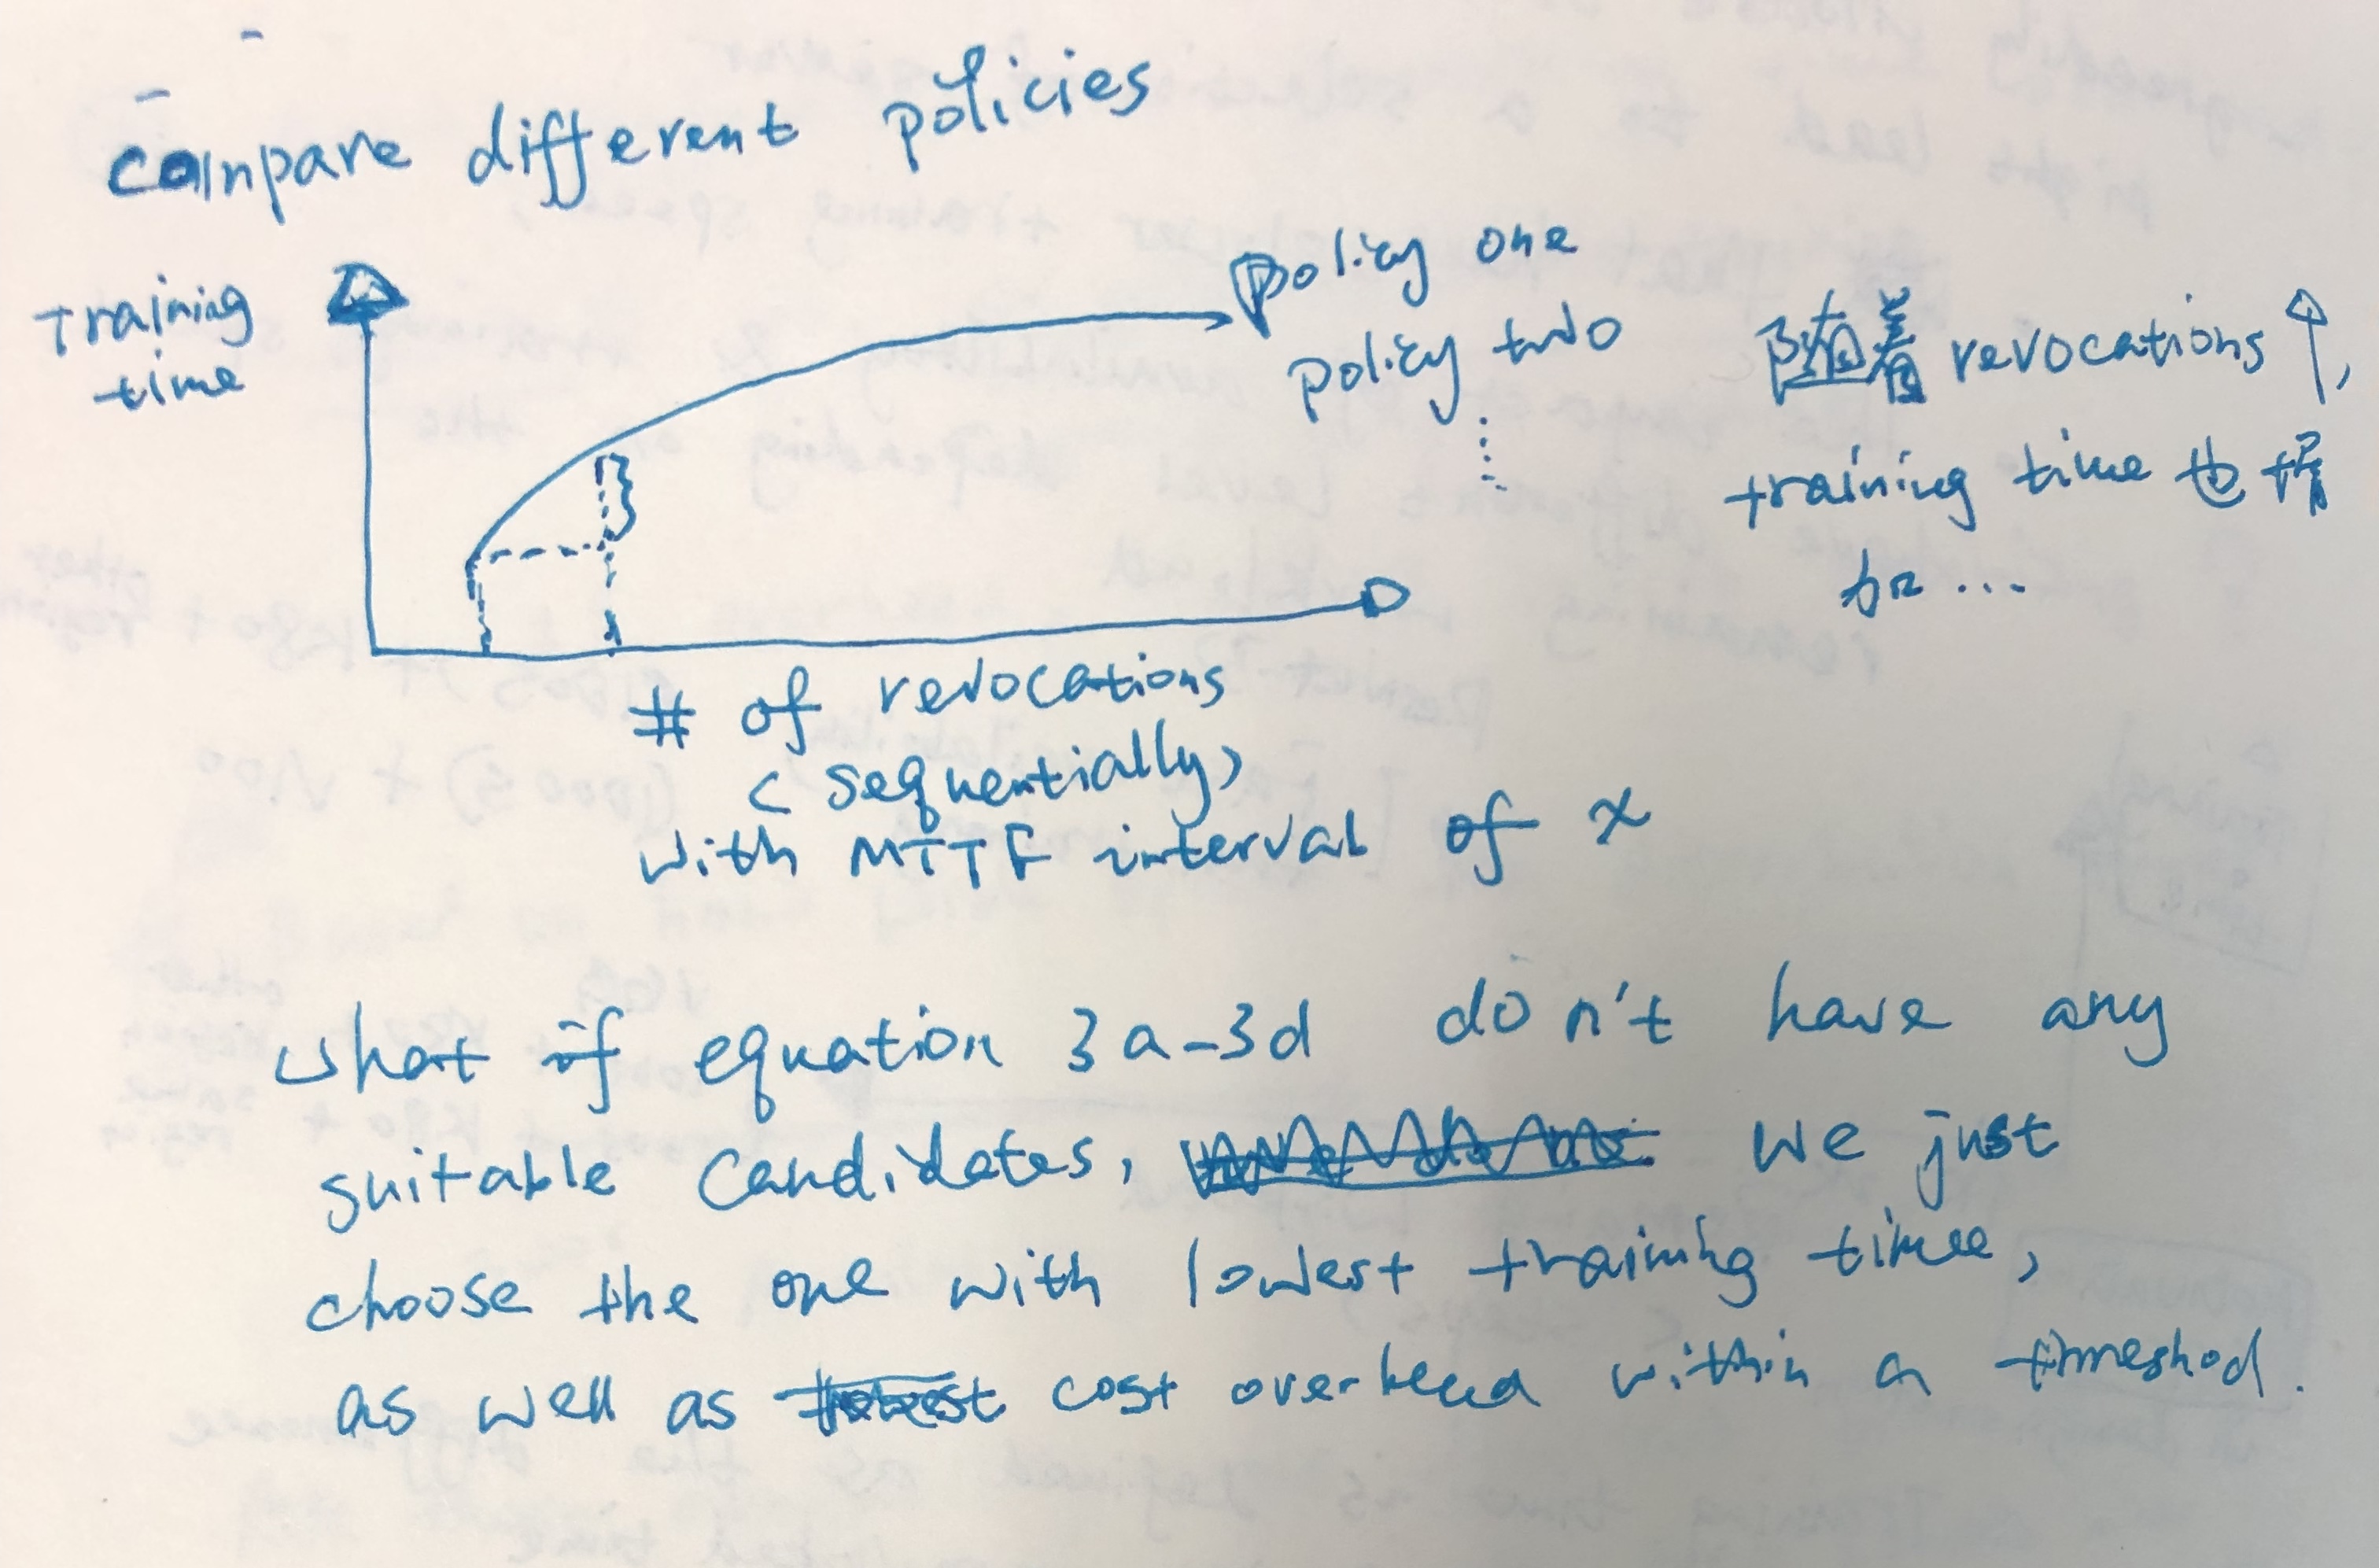 compare different policies
training
time
policy one
policy two
随着 revocations ↑,
training time 也增
加 ...
# of revocations
( sequentially)
with MTTF interval of x
what if equation 3a-3d don't have any
suitable candidates, we just
choose the one with lowest training time,
as well as cost overhead within a threshod.